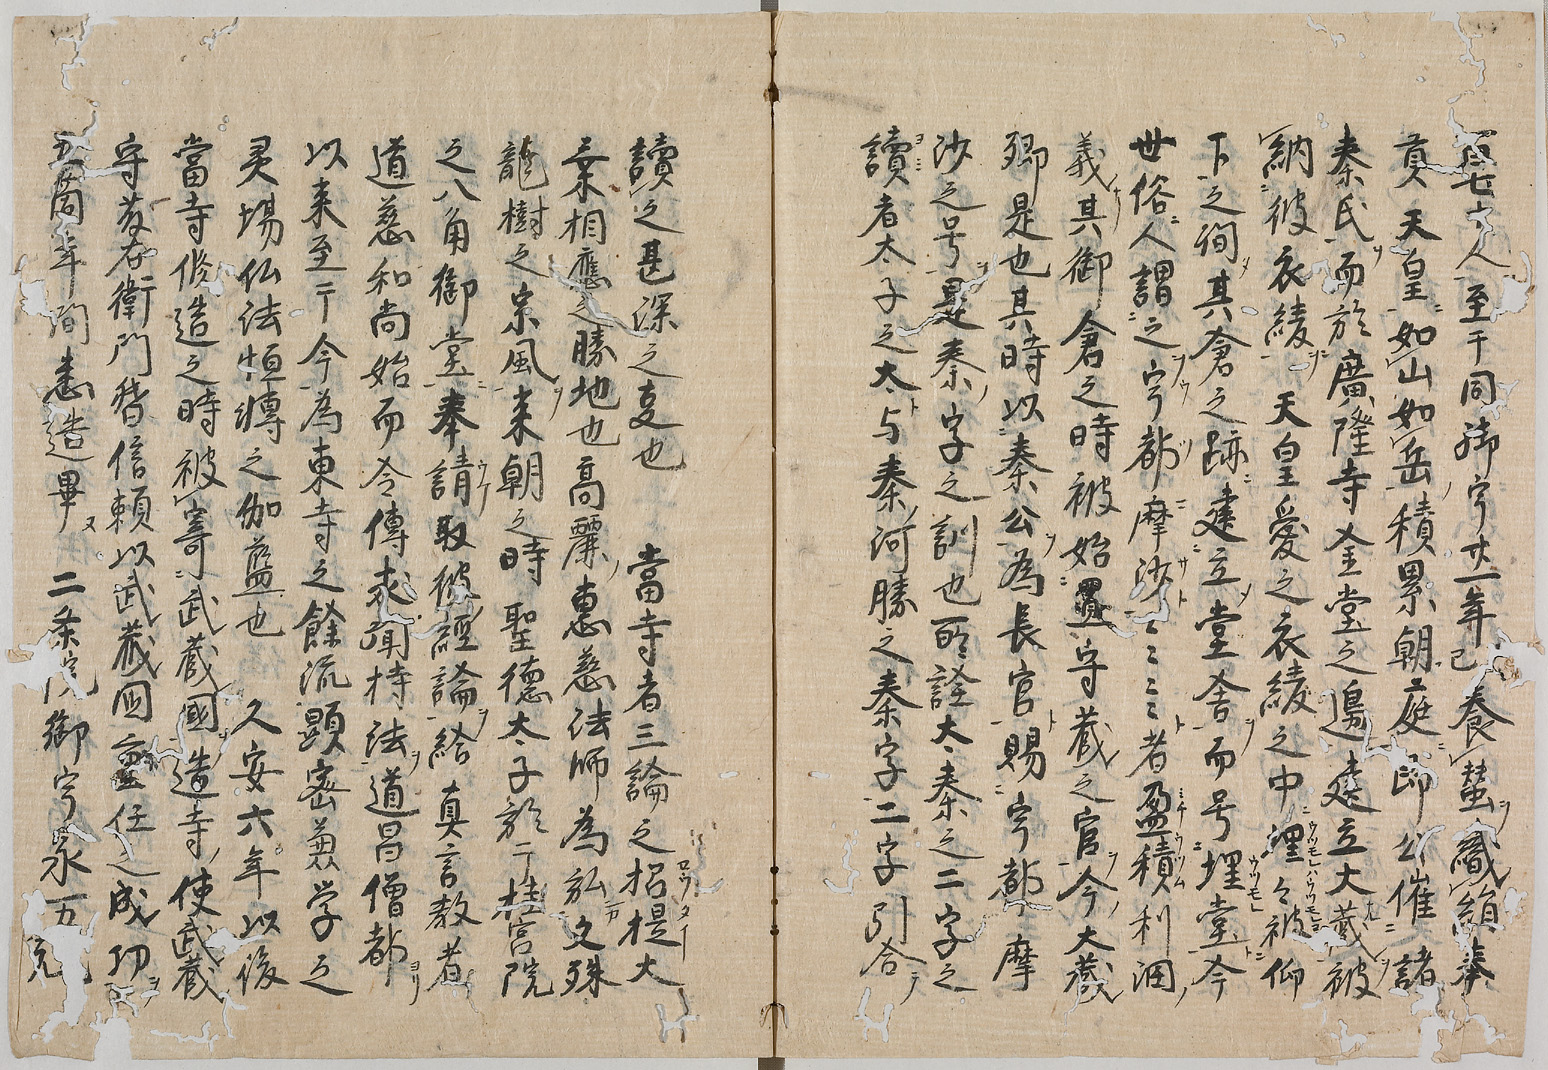 百七十人至于同御宇廿一年己養蚕織絹奉
貢天皇如山如岳積累朝庭即公催諸
秦氏而於廣隆寺金堂之邊建立大蔵被
納彼衣綾天皇愛之衣綾之中埋々被仰
下之詞其倉之跡建立堂舎而号埋堂今
世俗人謂之宇都摩沙ミミミ者盈積利潤
義其御倉之時被始置守蔵之官今大蔵
卿是也其時以秦公為長官賜宇都摩
沙之号是秦字之訓也所詮大秦之二字之
讀者太子之太与秦河勝之秦字二字引合
讀之甚深之支也　當寺者三論之招提大
乗相應之勝地也高麗恵慈法師為弘文殊
龍樹之宗風来朝之時聖徳太子於于桂宮院
之八角御堂奉請取彼經論給真言教者
道慈和尚始而令傳来聞持法道昌僧都
以来至于今為東寺之餘流顕密兼学之
灵場仏法恒轉之伽藍也　久安六年以後
當寺修造之時被寄武蔵國造寺使武蔵
守右衛門督信頼以武蔵國重任之成功
五箇年間悉造畢　二条院御宇永万元